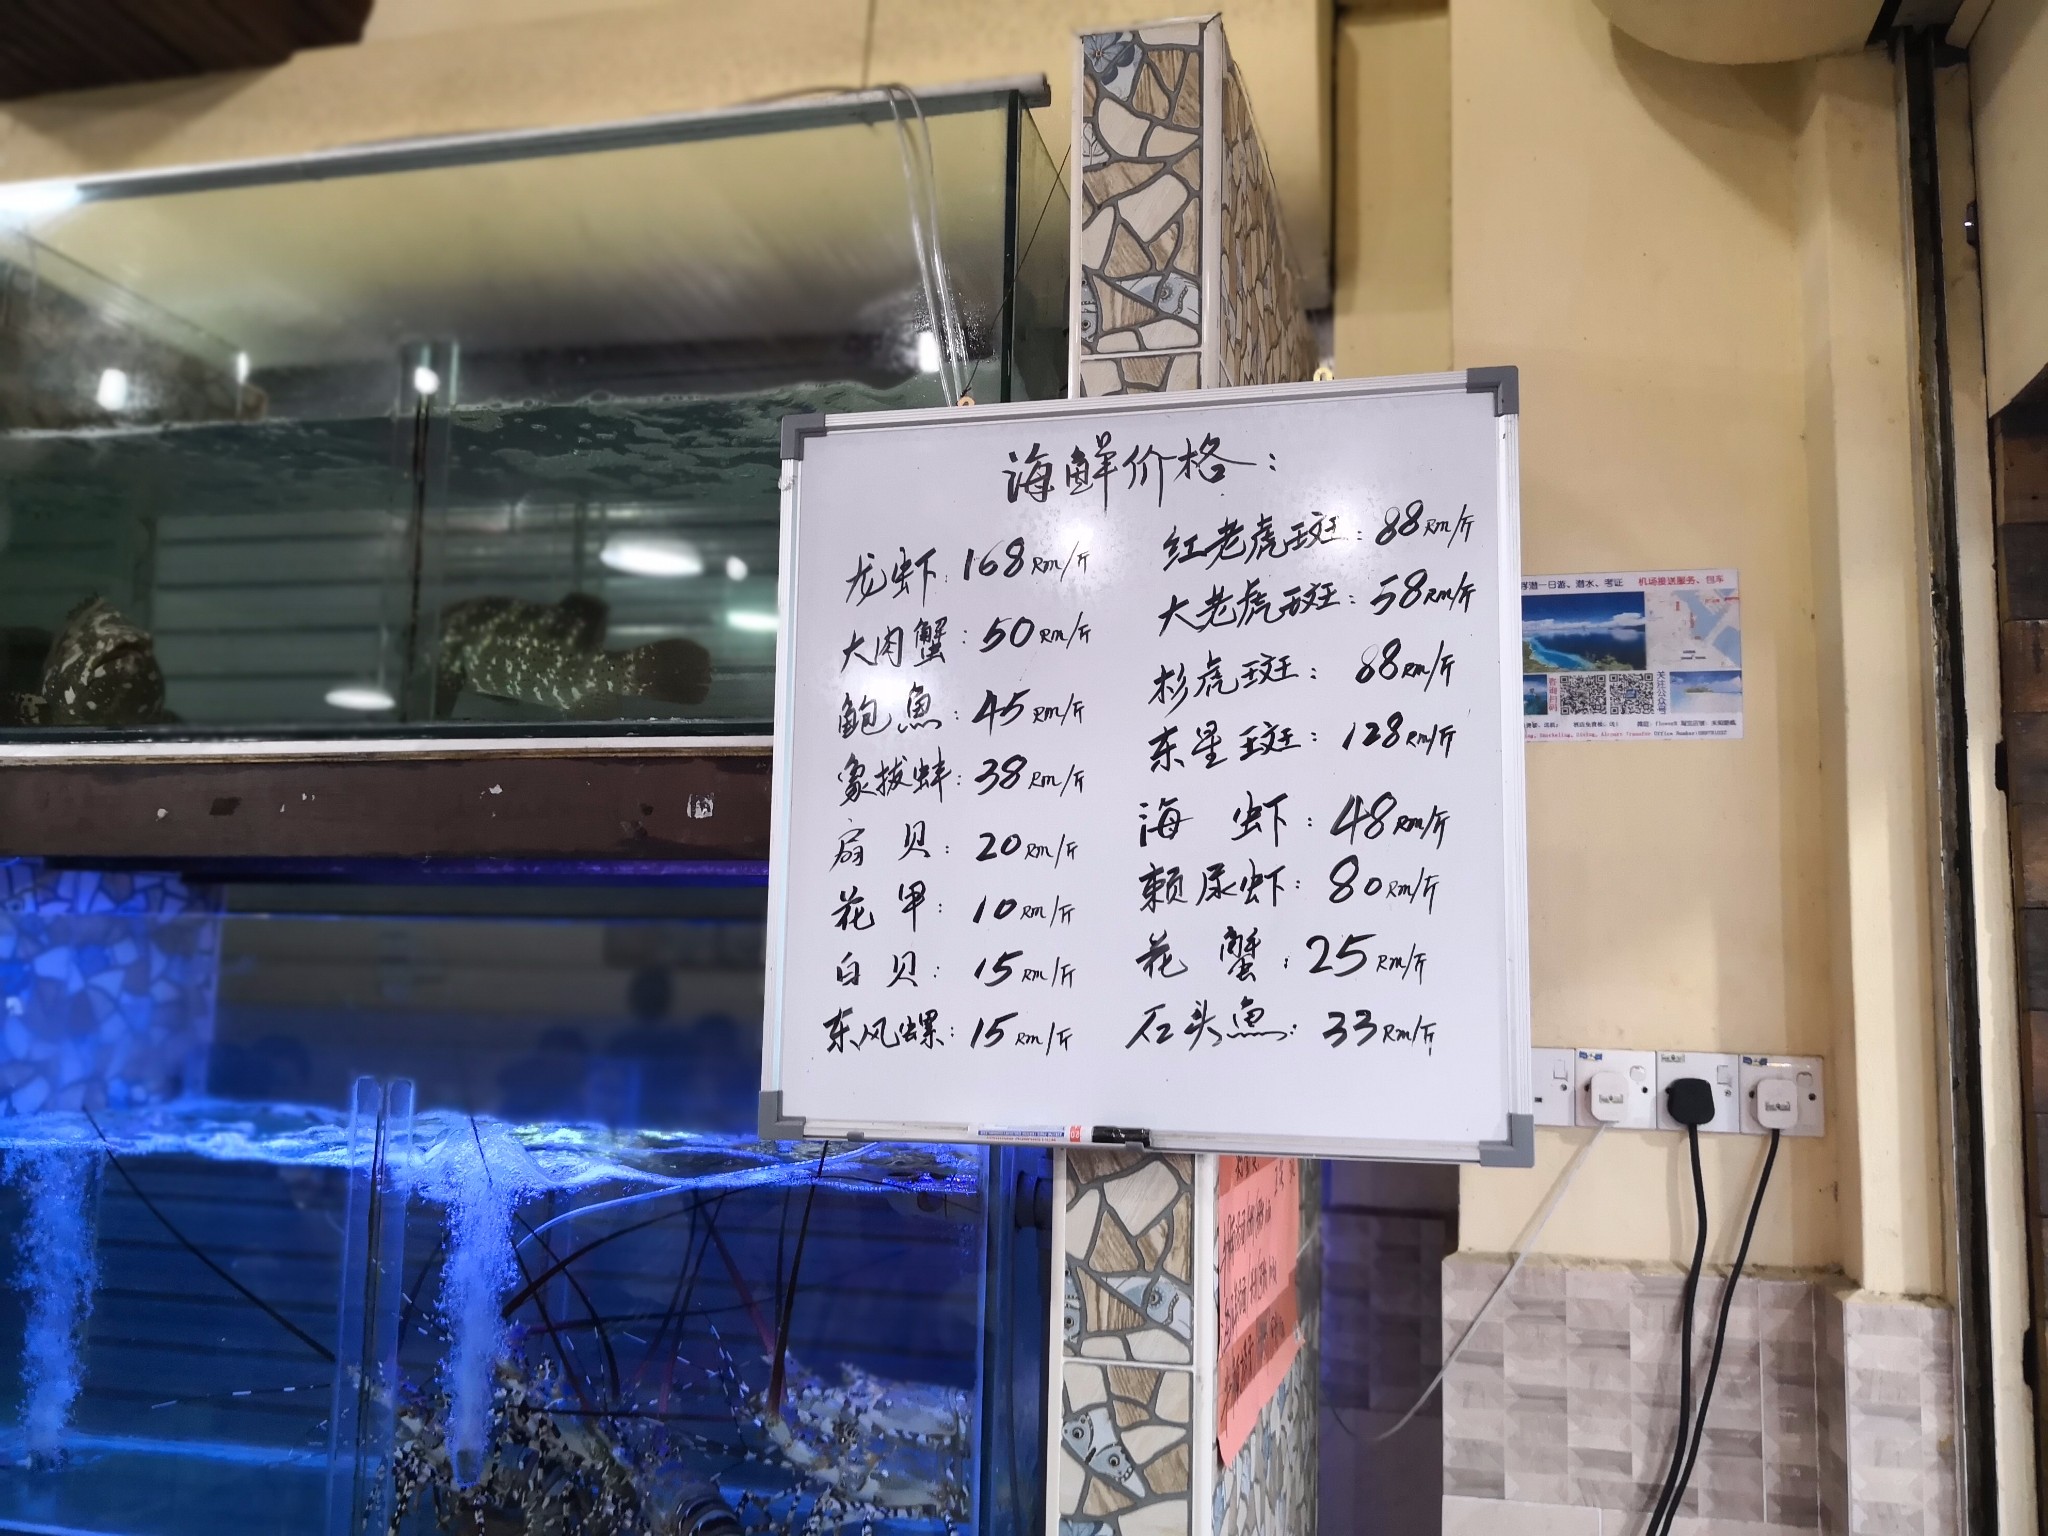 海鲜价格：
龙虾：168RM/斤
大肉蟹：50RM/斤
鲍魚：45RM/斤
象拔蚌：38RM/斤
扇贝：20RM/斤
花甲：10RM/斤
白贝：15RM/斤
东风螺：15RM/斤
红老虎斑：88RM/斤
大老虎斑：58RM/斤
杉虎斑：88RM/斤
东星斑：128RM/斤
海虾：48RM/斤
赖尿虾：80RM/斤
花蟹：25RM/斤
石头魚：33RM/斤
浮潜一日游、潜水、考证 机场接送服务、包车
咨询扫码
关注公众号